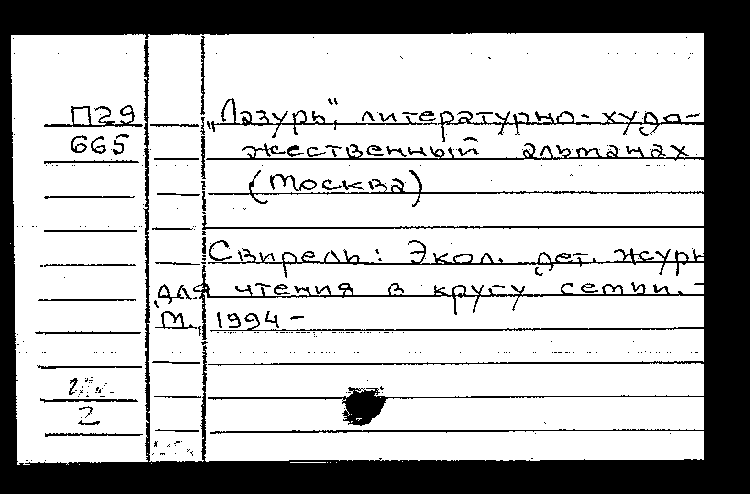 П29
665
„Лазурь“, литературно-худо-
жественный альманах
(Москва)
Свирель: Экол. дет. журн
для чтения в кругу семьи. -
М., 1994 -
2